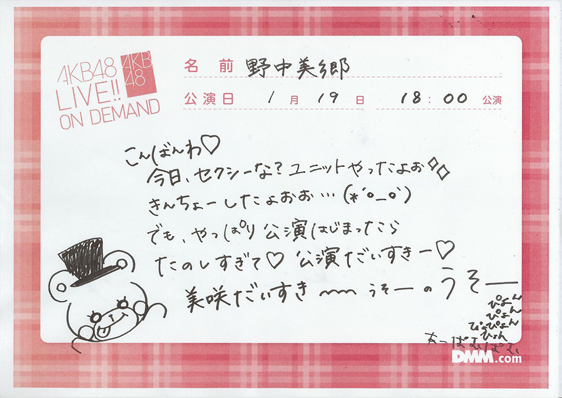 AKB48
LIVE!!
ON DEMAND
AKB
48
名前 野中美郷
公演日 1月19日 18:00公演
こんばんわ♡
今日、セクシーな?ユニットやったよぉ
きんちょーしたよぉぉ…(*´o_o`)
でも、やっぱり公演はじまったら
たのしすぎて♡ 公演だいすきー♡
美咲だいすき〜〜 うそーのうそー
ぴょん
ぴょん
ぴょぴょん
DMM.com